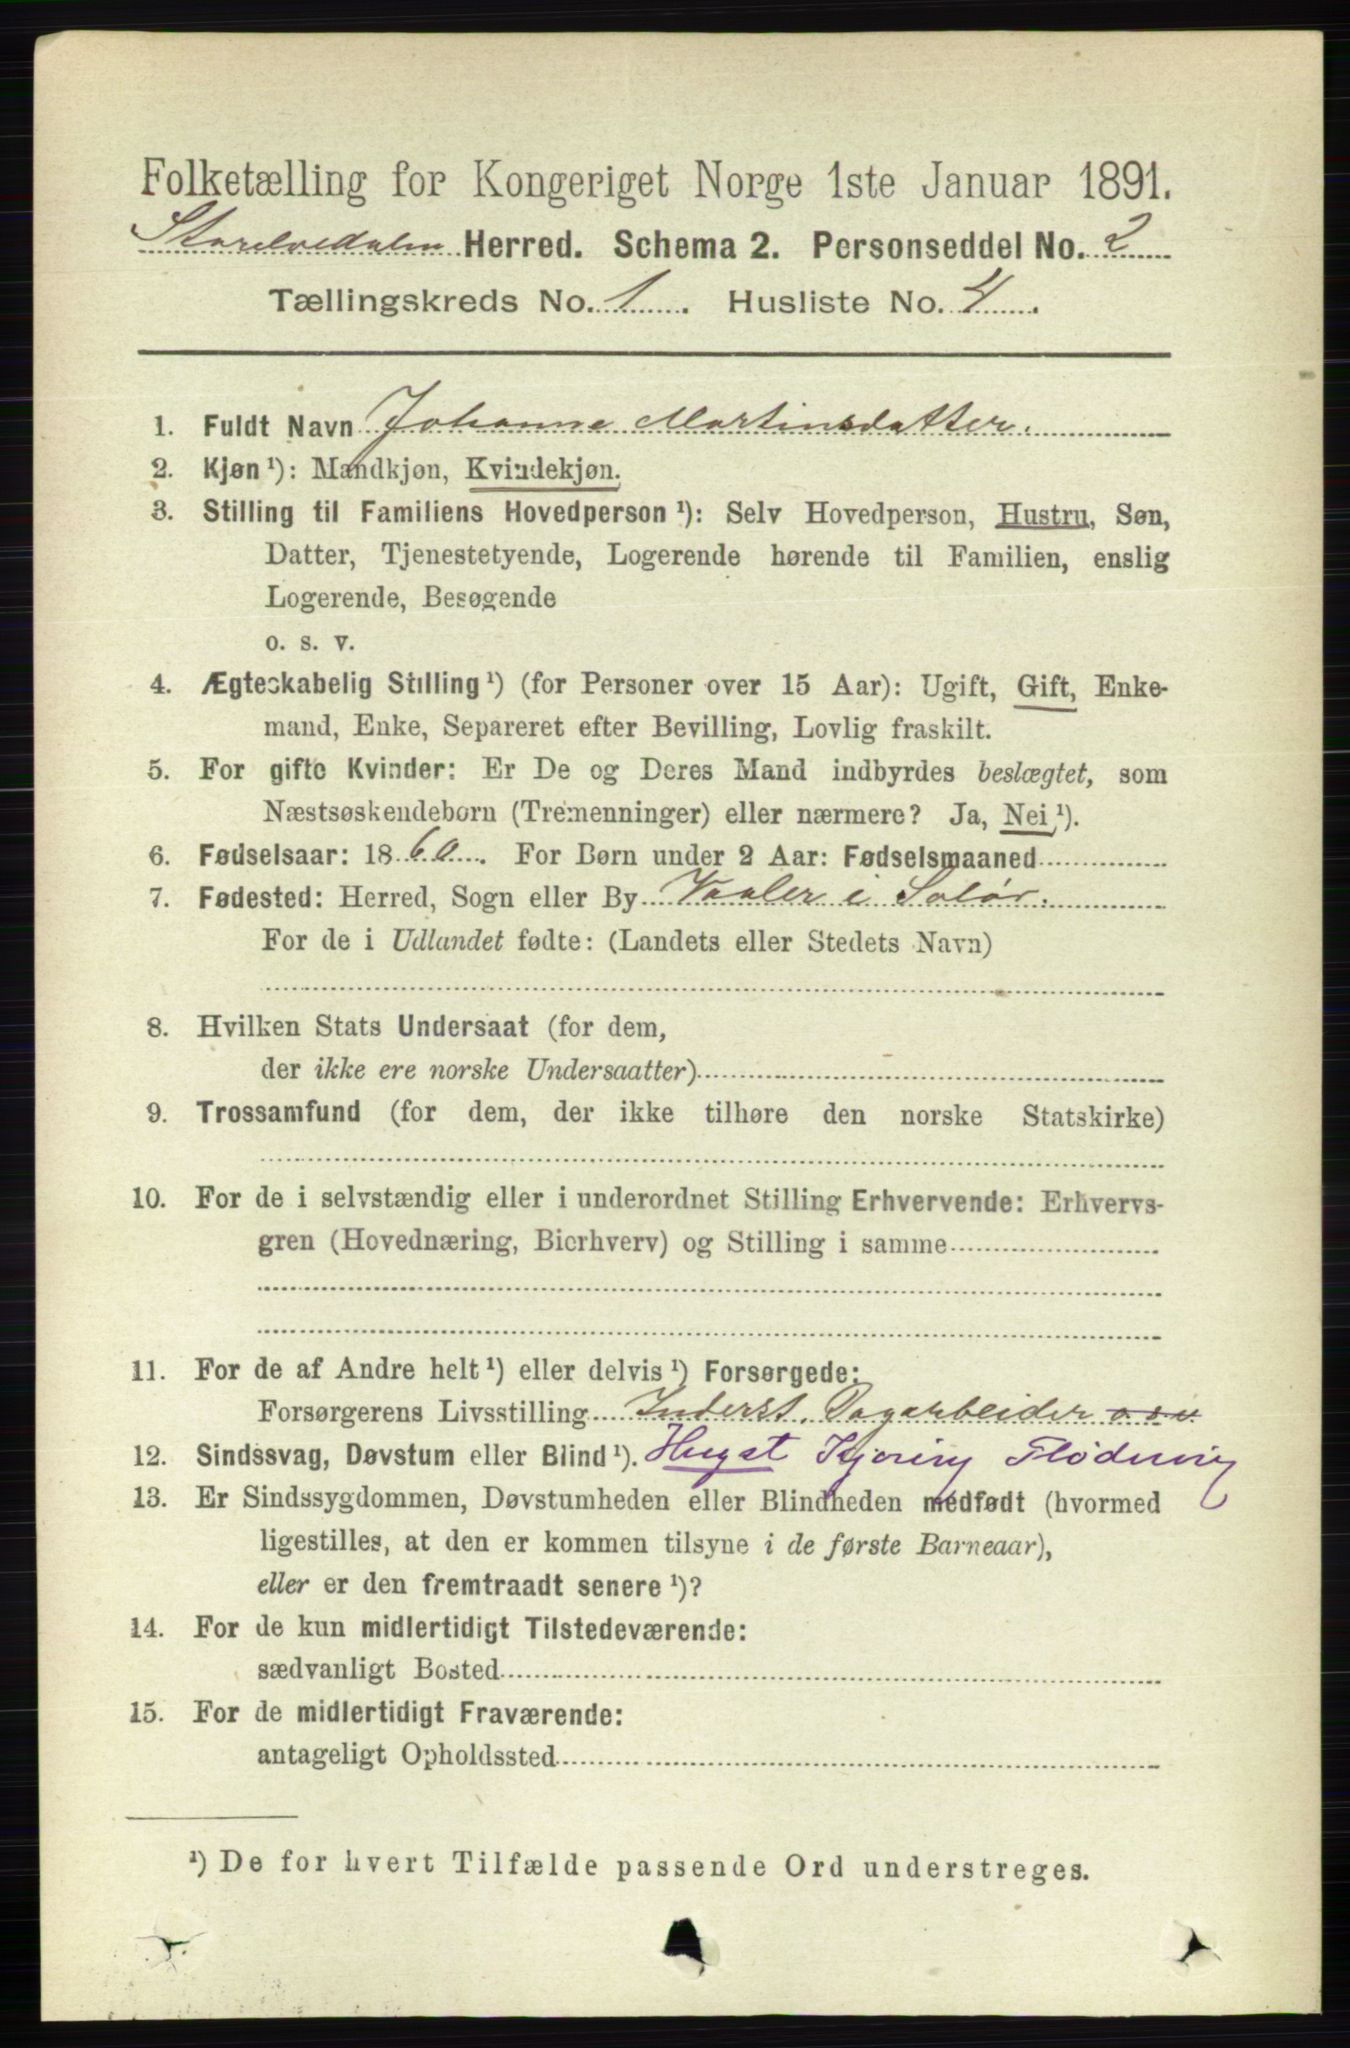 Folketælling for Kongeriget Norge 1ste Januar 1891.
Storelvedalen Herred. Schema 2. Personseddel No. 2
Tællingskreds No. 1. Husliste No. 4.
1. Fuldt Navn Johanne Martinsdatter.
2. Kjøn ¹): Mandkjøn, Kvindekjøn.
3. Stilling til Familiens Hovedperson ¹): Selv Hovedperson, Hustru, Søn,
Datter, Tjenestetyende, Logerende hørende til Familien, enslig
Logerende, Besøgende
o. s. v.
4. Ægteskabelig Stilling ¹) (for Personer over 15 Aar): Ugift, Gift, Enke-
mand, Enke, Separeret efter Bevilling, Lovlig fraskilt.
5. For gifte Kvinder: Er De og Deres Mand indbyrdes beslægtet, som
Næstsøskendebørn (Tremenninger) eller nærmere? Ja, Nei ¹).
6. Fødselsaar: 1860. For Børn under 2 Aar: Fødselsmaaned
7. Fødested: Herred, Sogn eller By Vaaler i Solør.
For de i Udlandet fødte: (Landets eller Stedets Navn)
8. Hvilken Stats Undersaat (for dem,
der ikke ere norske Undersaatter)
9. Trossamfund (for dem, der ikke tilhøre den norske Statskirke)
10. For de i selvstændig eller i underordnet Stilling Erhvervende: Erhvervs-
gren (Hovednæring, Bierhverv) og Stilling i samme
11. For de af Andre helt ¹) eller delvis ¹) Forsørgede:
Forsørgerens Livsstilling Inderst. Dagarbeider
12. Sindssvag, Døvstum eller Blind ¹). Hugst Kjøring Flødning
13. Er Sindssygdommen, Døvstumheden eller Blindheden medfødt (hvormed
ligestilles, at den er kommen tilsyne i de første Barneaar),
eller er den fremtraadt senere ¹)?
14. For de kun midlertidigt Tilstedeværende:
sædvanligt Bosted
15. For de midlertidigt Fraværende:
antageligt Opholdssted
¹) De for hvert Tilfælde passende Ord understreges.